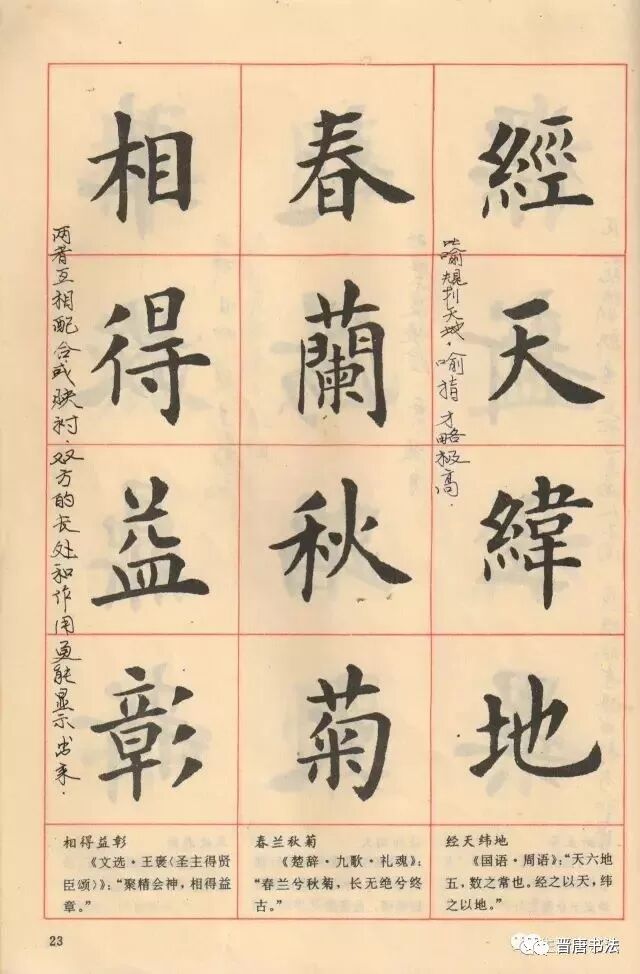 經天緯地
春蘭秋菊
相得益彰
比喻规划天地.喻指才略极高.
两者互相配合或映衬.双方的长处和作用更能显示出来.
经天纬地
《国语·周语》:“天六地
五,数之常也。经之以天,纬
之以地。”
春兰秋菊
《楚辞·九歌·礼魂》:
“春兰兮秋菊,长无绝兮终
古。”
相得益彰
《文选·王褒〈圣主得贤
臣颂〉》:“聚精会神,相得益
章。”
23
晋唐书法